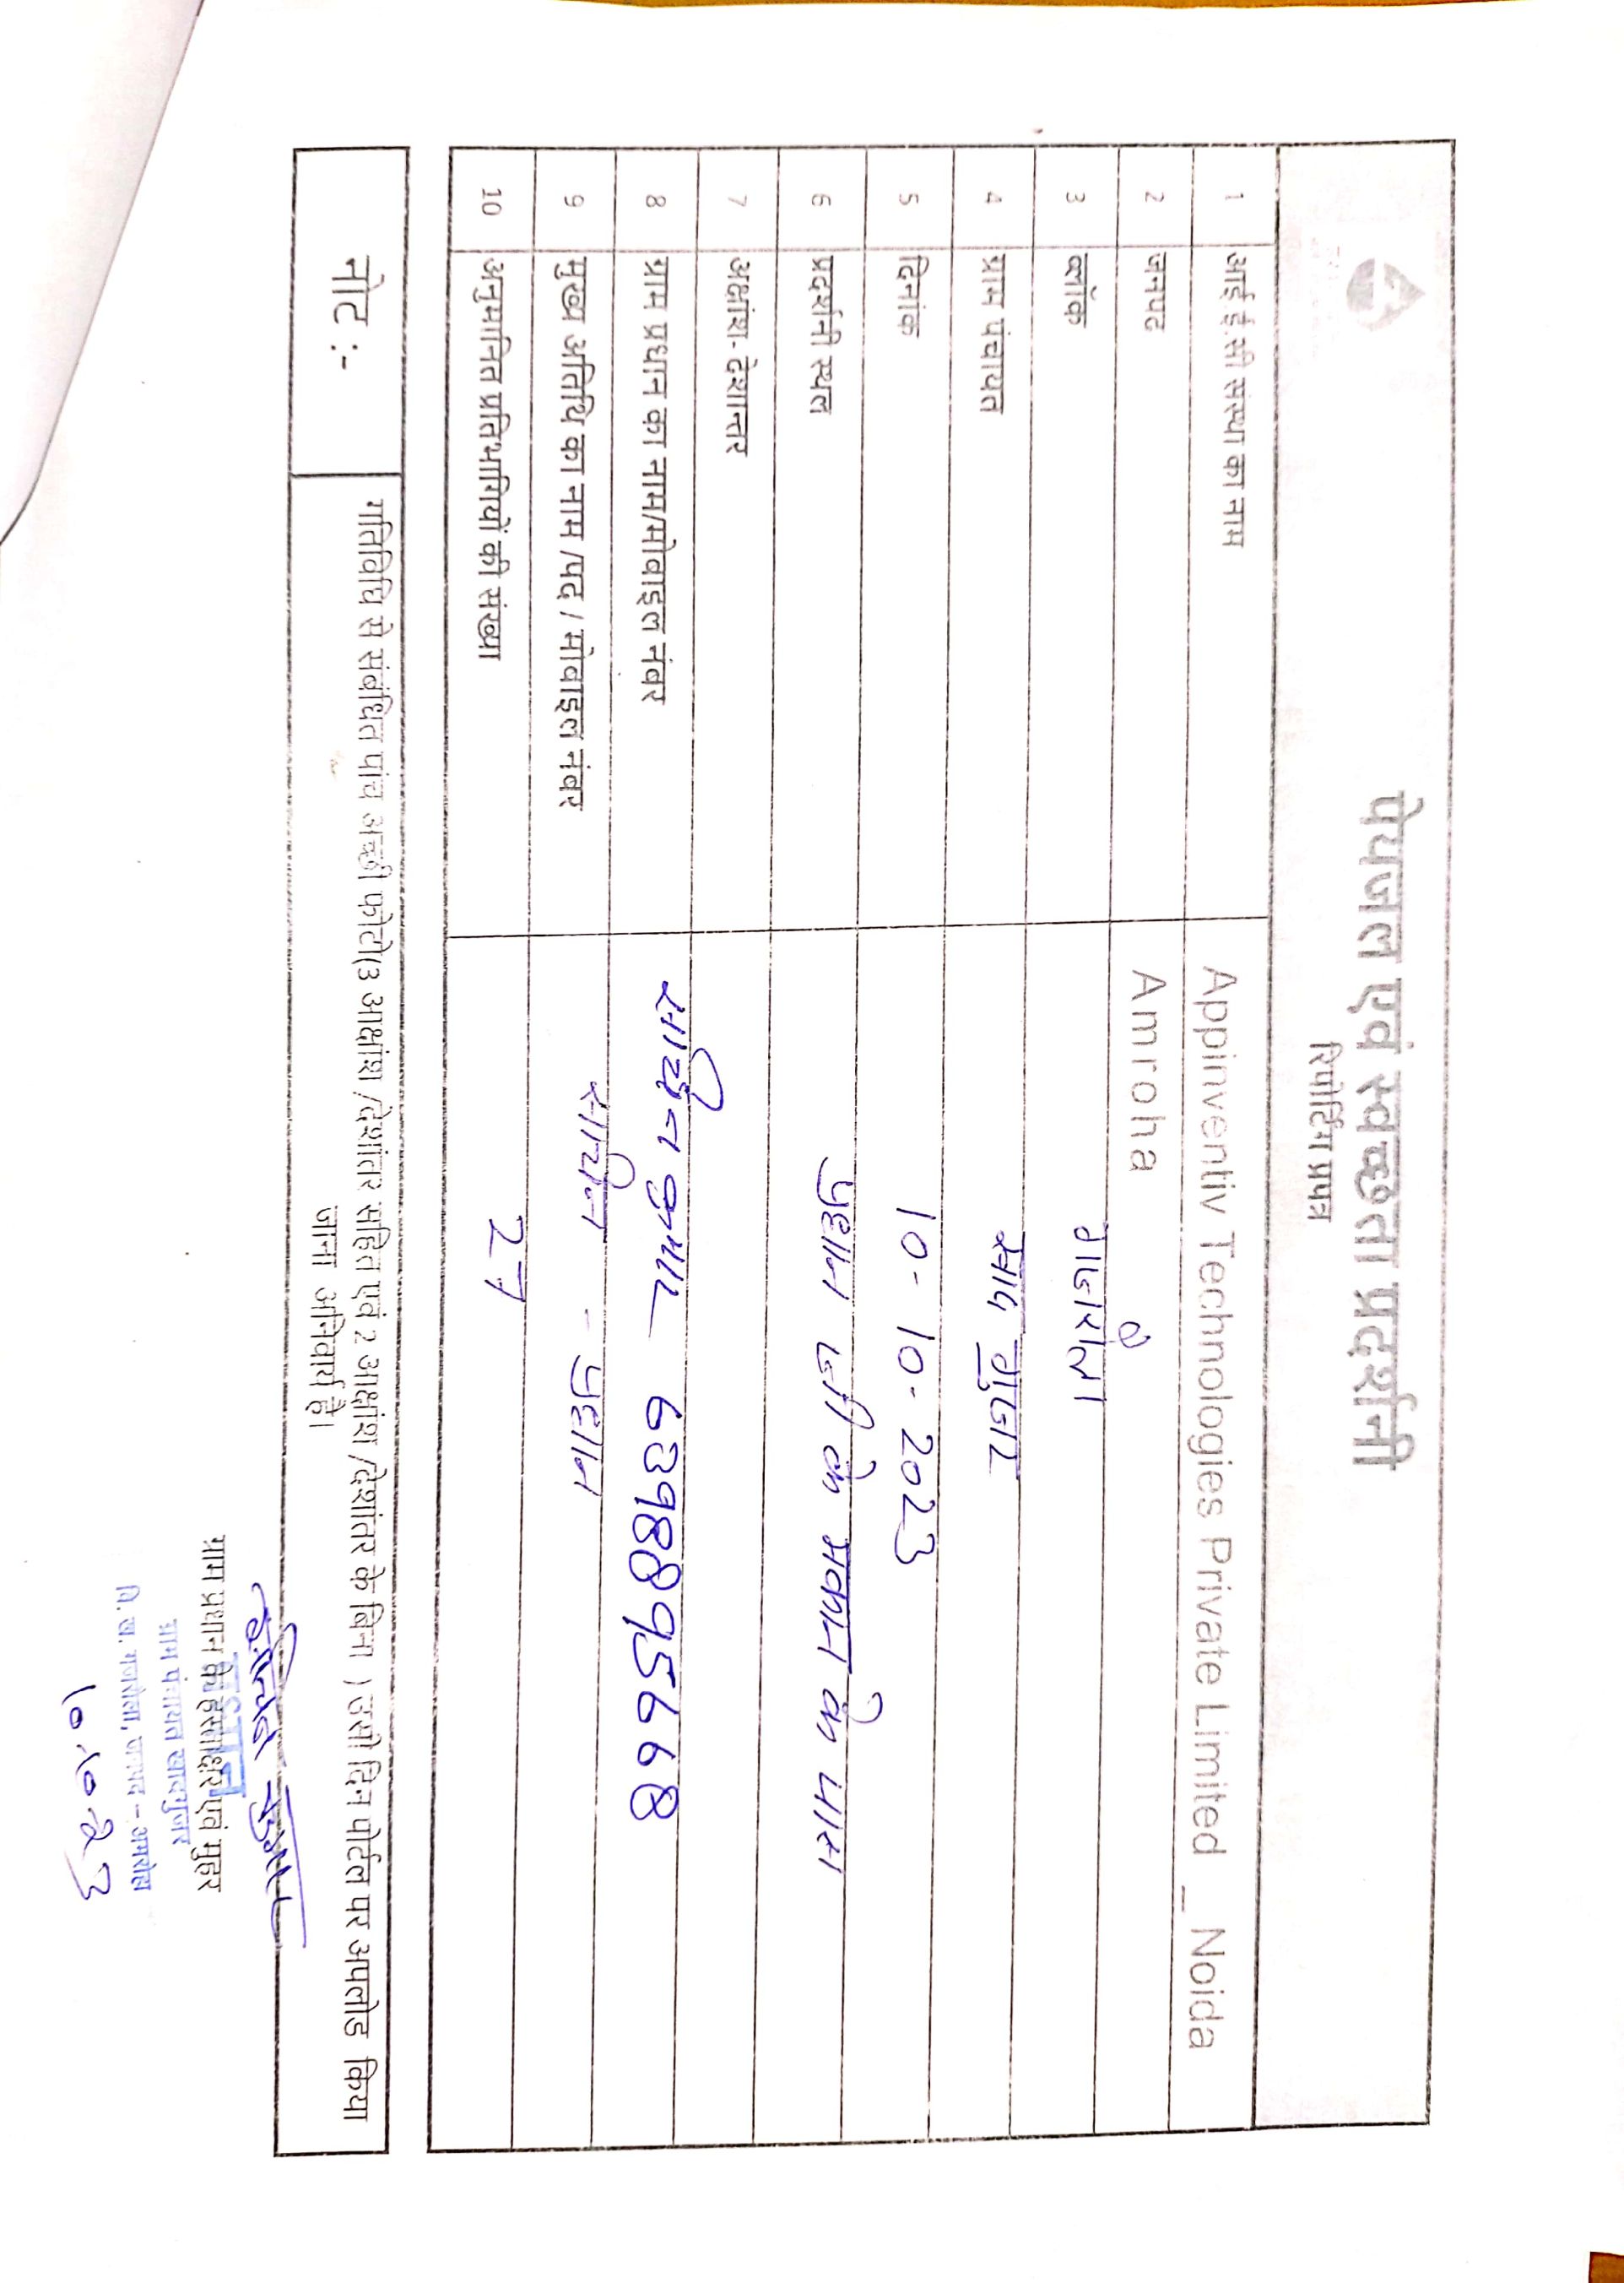 पेयजल एवं स्वच्छता प्रदर्शनी
रिपोर्टिंग प्रपत्र
1 आई.ई.सी संस्था का नाम Appinventiv Technologies Private Limited _ Noida
2 जनपद Amroha
3 ब्लॉक गजरौला
4 ग्राम पंचायत खाद गुजर
5 दिनांक 10-10-2023
6 प्रदर्शनी स्थल प्रधान जी के मकान के पास
7 अक्षांश- देशान्तर
8 ग्राम प्रधान का नाम/मोबाइल नंबर सचिन कुमार 6398895668
9 मुख्य अतिथि का नाम /पद / मोबाइल नंबर सचिन - प्रधान
10 अनुमानित प्रतिभागियों की संख्या 27
नोट :-
गतिविधि से संबंधित पांच अच्छी फोटो(3 आक्षांश /देशांतर सहित एवं 2 आक्षांश /देशांतर के बिना ) उसी दिन पोर्टल पर अपलोड किया
जाना अनिवार्य है।
ग्राम प्रधान के हस्ताक्षर एवं मुहर
प्रधान
ग्राम पंचायत खादगुजर
वि.ख. गजरौला, जनपद - अमरोहा